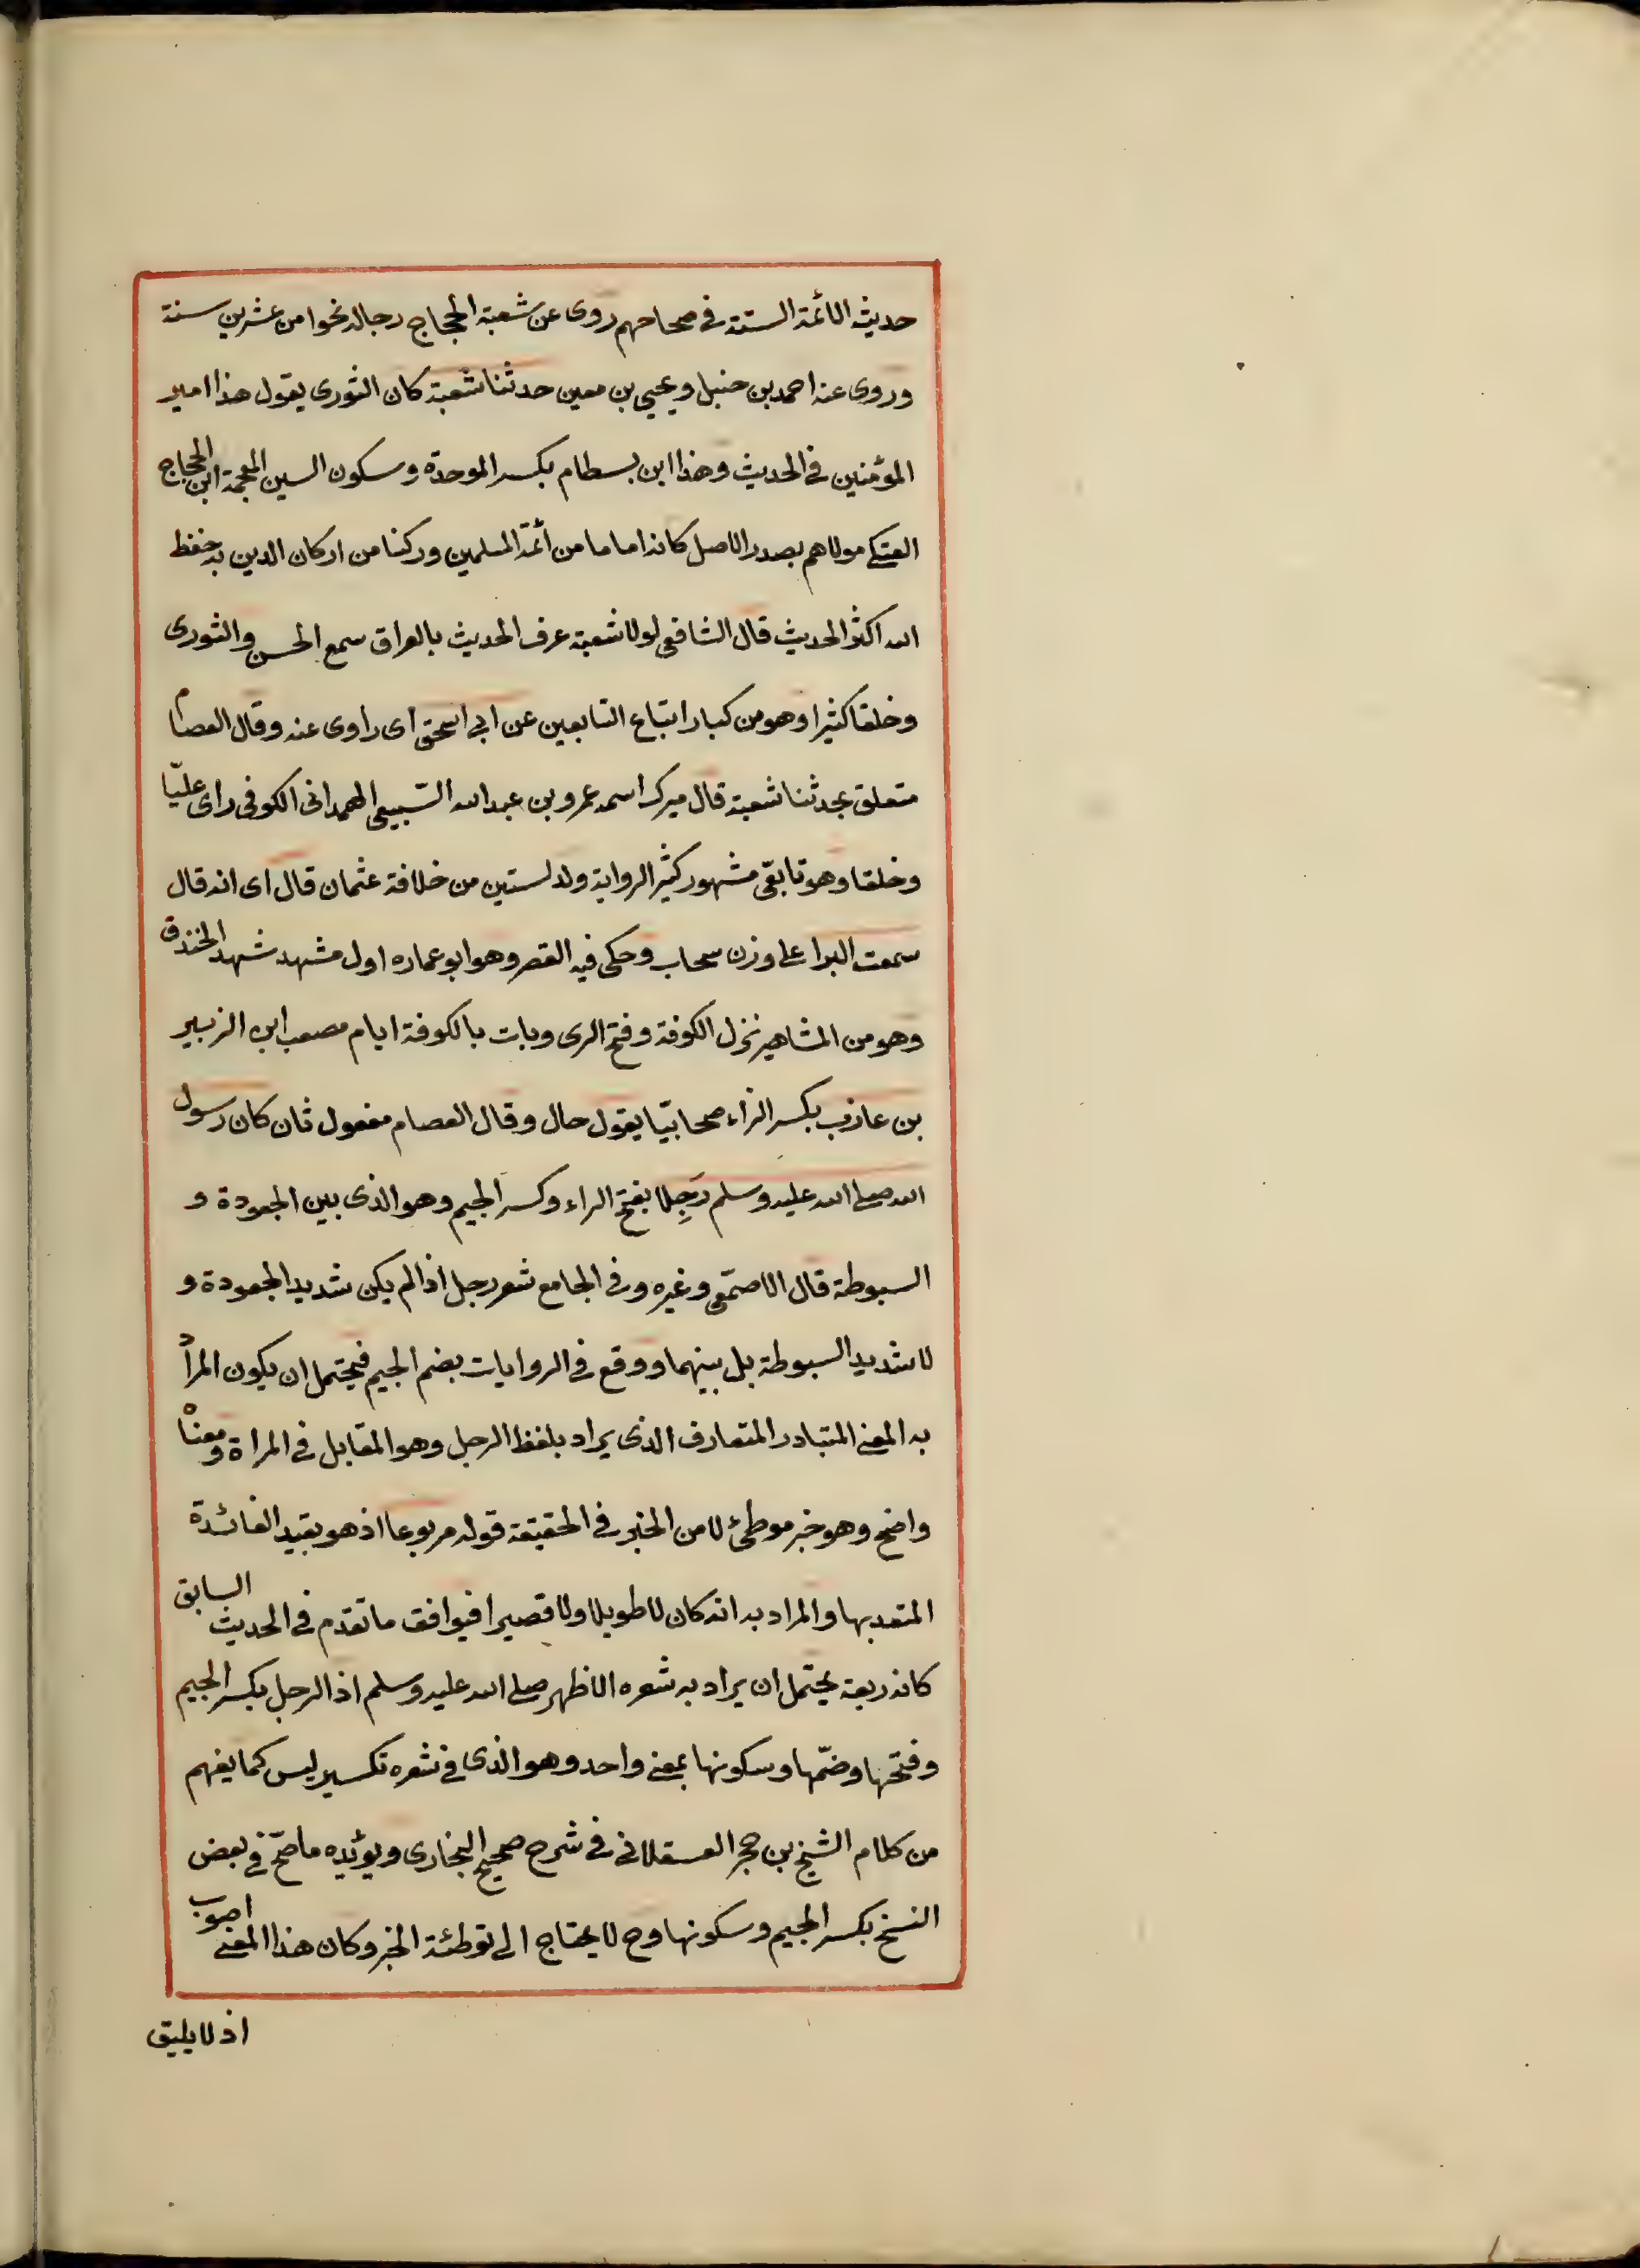 حديثه الائمة الستة فى صحاحهم روى عن شعبة الحجاج رجاله نحوا من عشرين سنة
وروى عنه احمد بن حنبل ويحيى بن معين حدثنا شعبة كان الثورى يقول هذا امير
المؤمنين فى الحديث وهذا ابن بسطام بكسر الموحدة وسكون السين المعجمة ابن الحجاج
العتكى مولاهم بصدر الاصل كانه اماما من ائمة المسلمين وركنا من اركان الدين به حفظ
الله اكثر الحديث قال الشافعى لولا شعبة عرف الحديث بالعراق سمع الحسن والثورى
وخلقا كثيرا وهو من كبار اتباع التابعين عن ابى اسحق اى راوى عنه وقال العصام
متعلق بحدثنا شعبة قال ميرك اسمه عمرو بن عبدالله السّبيعى الهمدانى الكوفى راى عليّا
وخلقا وهو تابعّى مشهور كثير الرواية ولد لستين من خلافة عثمان قال اى انه قال
سمعت البرا على وزن سحاب وحكى فيه القصر وهو ابو عماره اول مشهد شهد الخندق
وهو من المشاهير نزل الكوفة وفتح الرى وبات بالكوفة ايام مصعب ابن الزبير
بن عازب بكسر الزاء صحابيّا يقول حال وقال العصام مفعول ثان كان رسول
الله صلى الله عليه وسلم رَجِلا بفتح الراء وكسر الجيم وهو الذى بين الجعودة و
السبوطة قال الاصمّعى وغيره وفى الجامع شعر رجل اذا لم يكن شديد الجعودة و
لا شديد السبوطة بل بينهما ووقع فى الروايات بضم الجيم فيحتمل ان يكون المراد
به المعنى المتبادر المتعارف الذى يراد بلفظ الرجل وهو المقابل فى المراة ومعناه
واضح وهو خبر موطئ لا من الخبر فى الحقيقة قوله مربوعا اذ هو يقيد الفائدة
المتعد بها والمراد به انه كان لا طويلا ولا قصيرا فيوافق ما تقدم فى الحديث السابق
كانه ربعة يحتمل ان يراد به شعره الاظهر صلى الله عليه وسلم اذ الرجل بكسر الجيم
وفتحها وضمّها وسكونها بمعنى واحد وهو الذى فى شعره تكسير ليس كما يفهم
من كلام الشيخ بن حجر العسقلانى فى شرح صحيح البخارى ويؤيده ما صحّ فى بعض
النسخ بكسر الجيم وسكونها وح لا يحتاج الى توطئة الخبر وكان هذا المعنى اصوب
اذ لا يليق